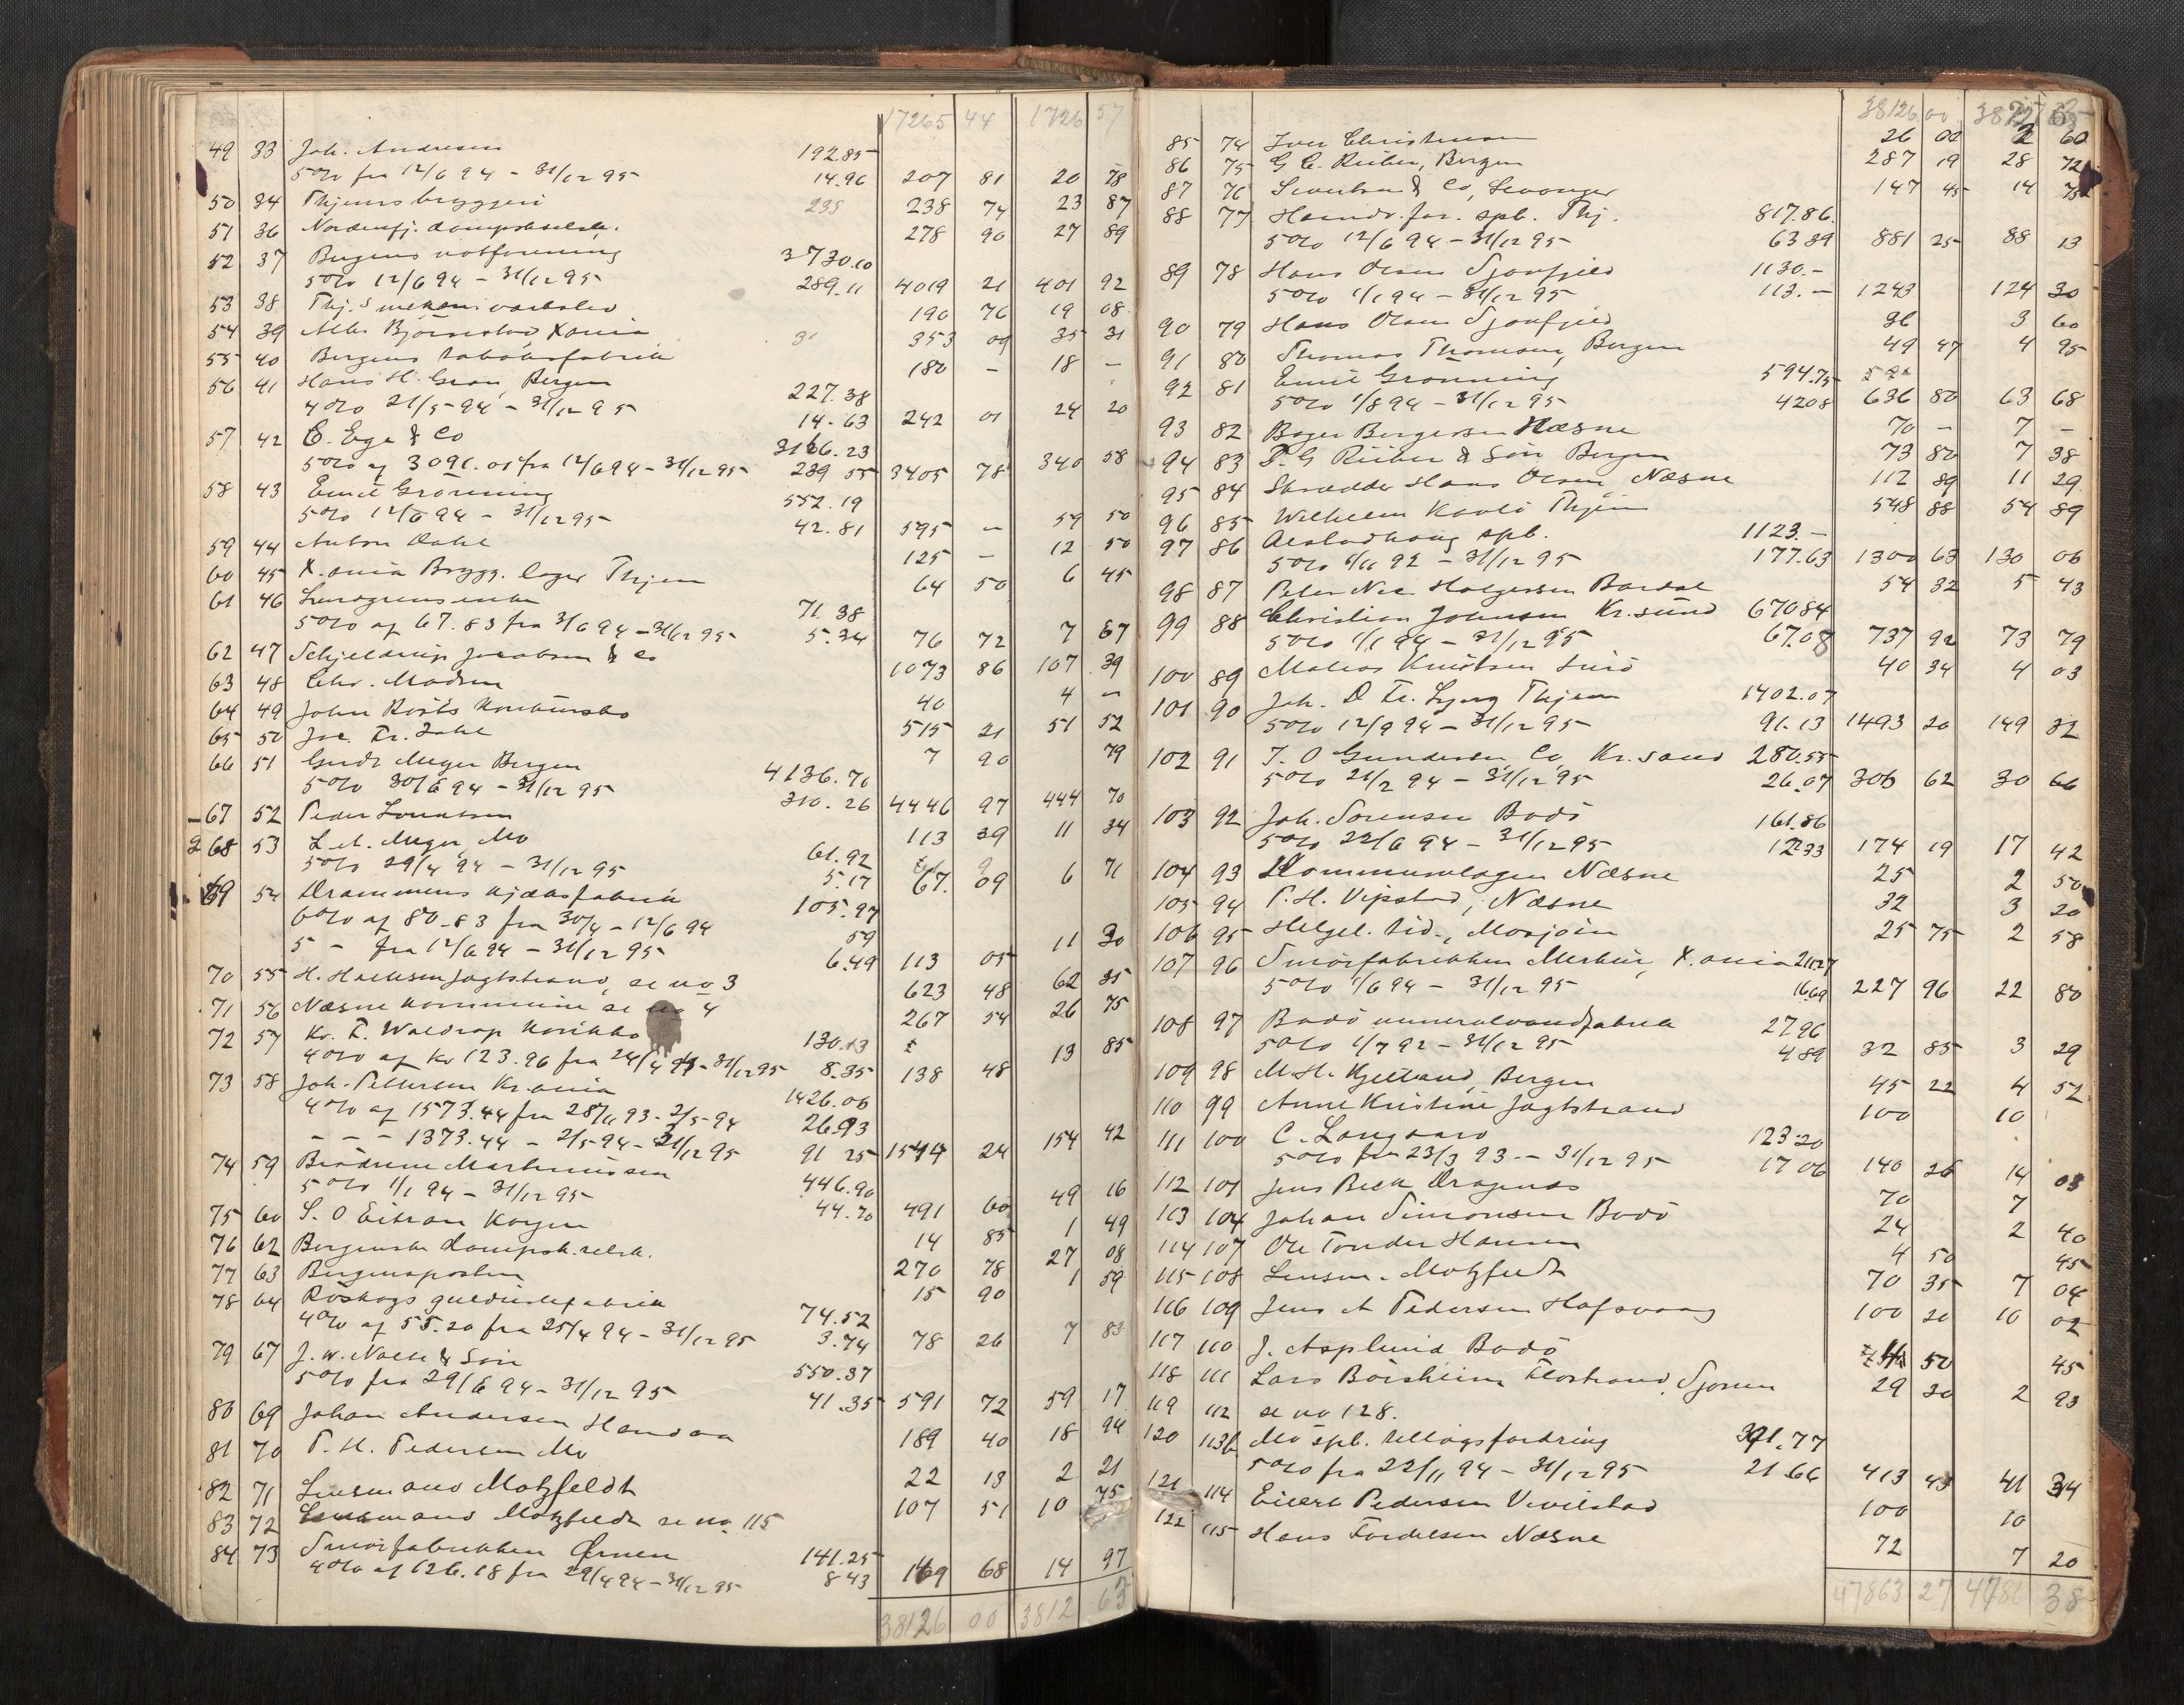 17265 44 1726 57
49 33 Joh. Andresen 192.85
5% fra 12/6 94 - 31/12 95 14.96 207 81 20 78
50 34 Thjems bryggeri 235 238 74 23 87
51 36 Nordenfj. dampskselsk. 278 90 27 89
52 37 Bergens notforening 3730.10
5% 12/6 94 - 31/12 95 289.11 4019 21 401 92
53 38 Thj.s mekan. værksted 190 76 19 08
54 39 Alb. Björnstad, Xania 353 09 35 31
55 40 Bergens tobaksfabrik 180 - 18 -
56 41 Hans H. Gran, Bergen 227.38
4% 21/5 94 - 31/12 95 14.63 242 01 24 20
57 42 C. Ege & Co 3166.23
5% af 3091.01 fra 12/6 94 - 31/12 95 239 55 3405 78 340 58
58 43 Emil Grönning 552.19
5% 12/6 94 - 31/12 95 42.81 595 - 59 50
59 44 Anton Dahl 125 - 12 50
60 45 X.ania Brygg. lager Thjem 64 50 6 45
61 46 Lundgrens enke 71.38
5% af 67.83 fra 3/6 94 - 31/12 95 5.34 76 72 7 67
62 47 Schjelderup Jacobsen & Co 1073 86 107 39
63 48 Chr. Madsen 40 4 -
64 49 John Röst's konkursbo 515 21 51 52
65 50 Joc. Fr. Dahl 7 90 79
66 51 Gerdt Meyer Bergen 4136.71
5% 30/6 94 - 31/12 95 310.26 4446 97 444 70
67 52 Peder Lorentsen 113 39 11 34
68 53 L. A. Meyer, Mo 61.92
5% 29/4 94 - 31/12 95 5.17 67. 09 6 71
69 54 Drammens kjæksfabrik 105.97
6% af 80.83 fra 30/4 - 12/6 94 59
5 - fra 12/6 94 - 31/12 95 6.49 113 05 11 30
70 55 H. Hacksen Jagtstrand, se no 3 623 48 62 35
71 56 Næsne kommune se no 4 267 54 26 75
72 57 Kr. F. Waldrop konkbo 130.13
4% af kr 123.96 fra 24/4 94 - 31/12 95 8.35 138 48 13 85
73 58 Joh. Pettersen Kr.ania 1426.06
4% af 1573.44 fra 28/11 93 - 2/5-94 26.93
- - - 1373.44 - 2/5-94 - 31/12 95 91 25 1544 24 154 42
74 59 Brödrene Martinussen 446.90
5% 1/1 94 - 31/12 95 44.70 491 60 49 16
75 60 S. O Eitran Kogen 14 85 1 49
76 62 Bergenske dampsk.selsk. 270 78 27 08
77 63 Bergensposten 15 90 1 59
78 64 Röskogs guldlistefabrik 74.52
4% af 55.20 fra 25/4 94 - 31/12 95 3.74 78 26 7 83
79 67 J. W. Naess & Sön 550.37
5% fra 29/6 94 - 31/12 95 41.35 591 72 59 17
80 69 Johan Andersen Handaa 189 40 18 94
81 70 P. H. Pedersen Mo 22 13 2 21
82 71 Lensmand Motzfeldt 107 51 10 75
83 72 Lensmand Motzfeldt se no. 115
84 73 Smörfabrikken Örnen 141.25
4% af 126.18 fra 29/4 94 - 31/12 95 8 43 149 68 14 97
38126 00 3812 63
38126 00 3812 63
85 74 Iver Christensen 26 00 2 60
86 75 G C. Rieber, Bergen 287 19 28 72
87 76 Sivertsen & Co, Levanger 147 45 14 75
88 77 Haandv. for. spb. Thj. 817.86
5% 12/6 94 - 31/12 95 63 39 881 25 88 13
89 78 Hans Olsen Sjonfjeld 1130.-
5% 1/1 94 - 31/12 95 113.- 1243 124 30
90 79 Hans Olsen Sjonfjeld 36 3 60
91 80 Thomas Thomsen, Bergen 49 47 4 95
92 81 Emil Grönning 594.75
5% 1/8 94 - 31/12 95 42 08 636 80 63 68
93 82 Bager Bergersen Næsne 70 - 7 -
94 83 P. G Rieber & Sön Bergen 73 80 7 38
95 84 Skrædder Hans Olsen Næsne 112 89 11 29
96 85 Wilhelm Kavli Thjem 548 88 54 89
97 86 Alstadhaug spb. 1123.-
5% 1/11 92 - 31/12 95 177.63 1300 63 130 06
98 87 Peter Nic Holgersen Bardal 54 32 5 43
99 88 Christian Johnsen Kr.sund 670 84
5% 1/1 94 - 31/12 95 67.08 737 92 73 79
100 89 Matias Knudsen Lurö 40 34 4 03
101 90 Joh. D Fr. Lyng Thjem 1402.07
5% 12/9 94 - 31/12 95 91.13 1493 20 149 32
102 91 T. O Gundersen, Co, Kr.sand 280.55
5% 21/2 94 - 31/12 95 26.07 306 62 30 66
103 92 Joh. Sorensen Bodö 161.86
5% 22/6 94 - 31/12 95 12 33 174 19 17 42
104 93 Kommunelagen Næsne 25 2 50
105 94 P. H. Vipstad, Næsne 32 3 20
106 95 Helgel. tid., Mosjöen 25 75 2 58
107 96 Smörfabrikken Merkur, X.ania 211.27
5% 1/6 94 - 31/12 95 16.69 227 96 22 80
108 97 Bodö mineralvandfabrik 27 96
5% 1/7 92 - 31/12 95 4 89 32 85 3 29
109 98 M. H. Kjelland, Bergen 45 22 4 52
110 99 Anne Kristine Jagtstrand 100 10
111 100 C. Langaard 123.20
5% fra 23/3 93 - 31/12 95 17 06 140 26 14 03
112 101 Jens Beck Dragnæs 70 7
113 104 Johan Simonsen Bodö 24 2 40
114 107 Ole Tonder Hansen 4 50 45
115 108 Lensm. Motzfeldt 70 35 7 04
116 109 Jens A Pedersen Hafsvaag 100 20 10 02
117 110 J. Asplund Bodö 4 50 45
118 111 Lars Börsheim Flostrand, Sjonen 29 30 2 93
119 112 se no 128.
120 113b Mo spb. tillægsfordring 391.77
5% fra 22/11 94 - 31/12 95 21.66 413 43 41 34
121 114 Eilert Pedersen Vevilstad 100 10
122 115 Hans Fordelsen Næsne 72 7 20
47863 27 4786 38